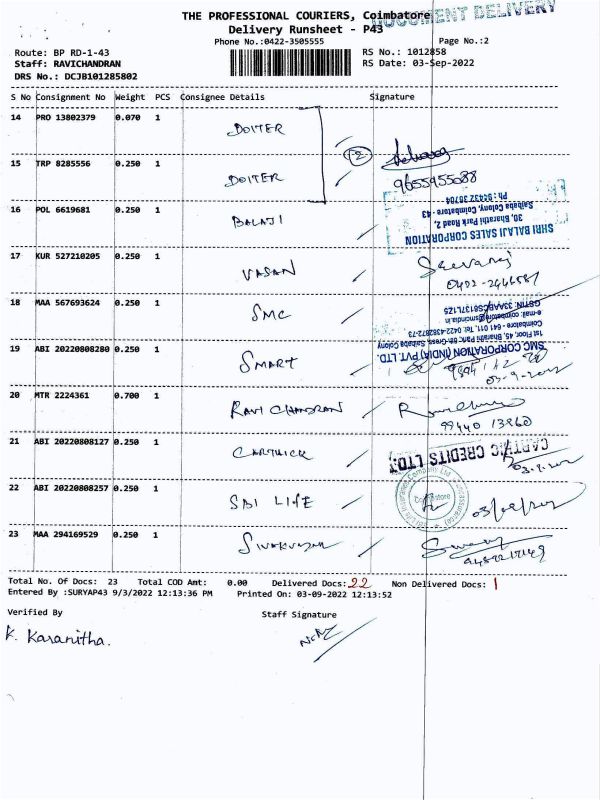 DOCUMENT DELIVERY
THE PROFESSIONAL COURIERS, Coimbatore
Delivery Runsheet - P43
Phone No.:0422-3505555
Page No.:2
Route: BP RD-1-43
RS No.: 1012858
Staff: RAVICHANDRAN
RS Date: 03-Sep-2022
DRS No.: DCJB101285802
S No Consignment No Weight PCS Consignee Details Signature
14 PRO 13802379 0.070 1 DOITER
2
15 TRP 8285556 0.250 1 DOITER
9655955088
16 POL 6619681 0.250 1 BALAJI
SHRI BALAJI SALES CORPORATION
30, Bharathi Park Road 2,
Saibaba Colony, Coimbatore - 43
17 KUR 527210205 0.250 1 VASAN
18 MAA 567693624 0.250 1 SMC
SMC CORPORATION (INDIA) PVT. LTD.
1st Floor, 45, Bharathi Park, 8th Cross, Saibaba Colony
19 ABI 20220808280 0.250 1 SMART
20 MTR 2224361 0.700 1 RAVI CHANDRAN
99440 13860
21 ABI 20220808127 0.250 1 CARTHICK
22 ABI 20220808257 0.250 1 SBI LIFE
Coimbatore
23 MAA 294169529 0.250 1
Total No. Of Docs: 23 Total COD Amt: 0.00 Delivered Docs: 22 Non Delivered Docs: 1
Entered By :SURYAP43 9/3/2022 12:13:36 PM Printed On: 03-09-2022 12:13:52
Verified By Staff Signature
K. Karanitha.